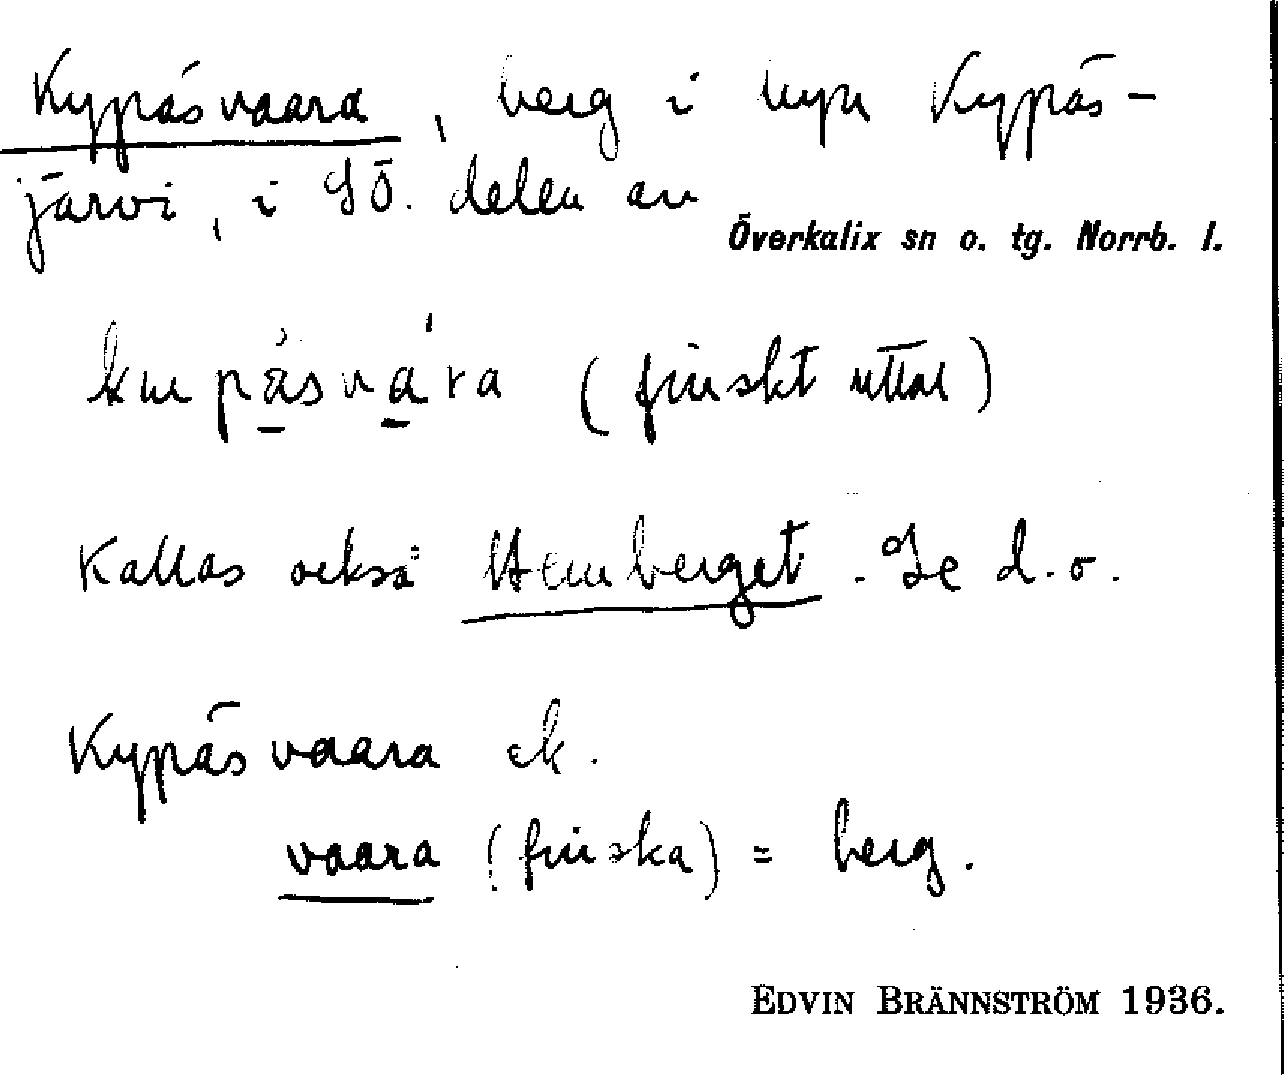 Kypäsvaara, berg i byn Kypäs-
järvi, i SÖ. delen av
Överkalix sn o. tg. Norrb. l.
(finskt uttal)
Kallas också Hemberget. Se d.o.
Kypäsvaara ek.
vaara (finska) = berg.
EDVIN BRÄNNSTRÖM 1936.